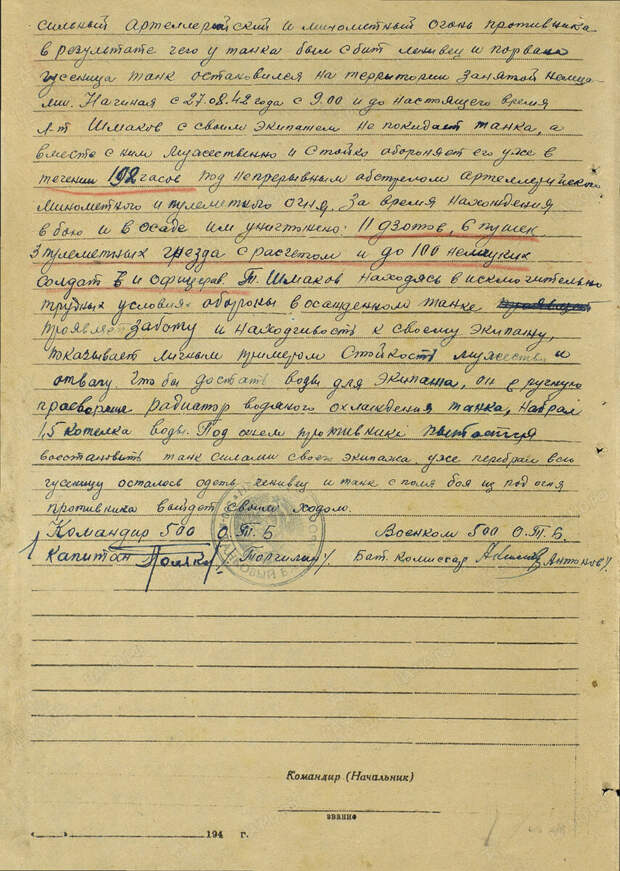 сильный артеллерийский и минометный огонь противника
в результате чего у танка был сбит ленивец и порвана
гусеница танк остановился на территории занятой немца-
ми. Начиная с 27.08.42 года с 9.00 и до настоящего время
л-т Шмаков с своим экипажем не покидает танка, а
вместе с ним мужественно и стойко обороняет его уже в
течении 192 часов под непрерывным обстрелом артеллерийского
минометного и пулеметного огня. За время нахождения
в бою и в осаде им уничтожено: 11 дзотов, 6 пушек
3 пулеметных гнезда с расчетом и до 100 немецких
солдат и офицеров. Т. Шмаков находясь в исключительно
трудных условиях обороны в осажденном танке
проявляет заботу и находчивость к своему экипажу,
показывает личным примером стойкость мужество и
отвагу. Что бы достать воды для экипажа, он
радиатор водяного охлаждения танка, набрал
1,5 котелка воды. Под огнем противника пытается
восстановить танк силами своего экипажа уже перебрал всю
гусеницу осталось одеть ленивец и танк с поля боя из под огня
противника выйдет своим ходом.
Командир 500 О.Т.Б Военком 500 О.Т.Б.
Капитан Бат. комиссар Антонов
Командир (Начальник)
звание
194 г.